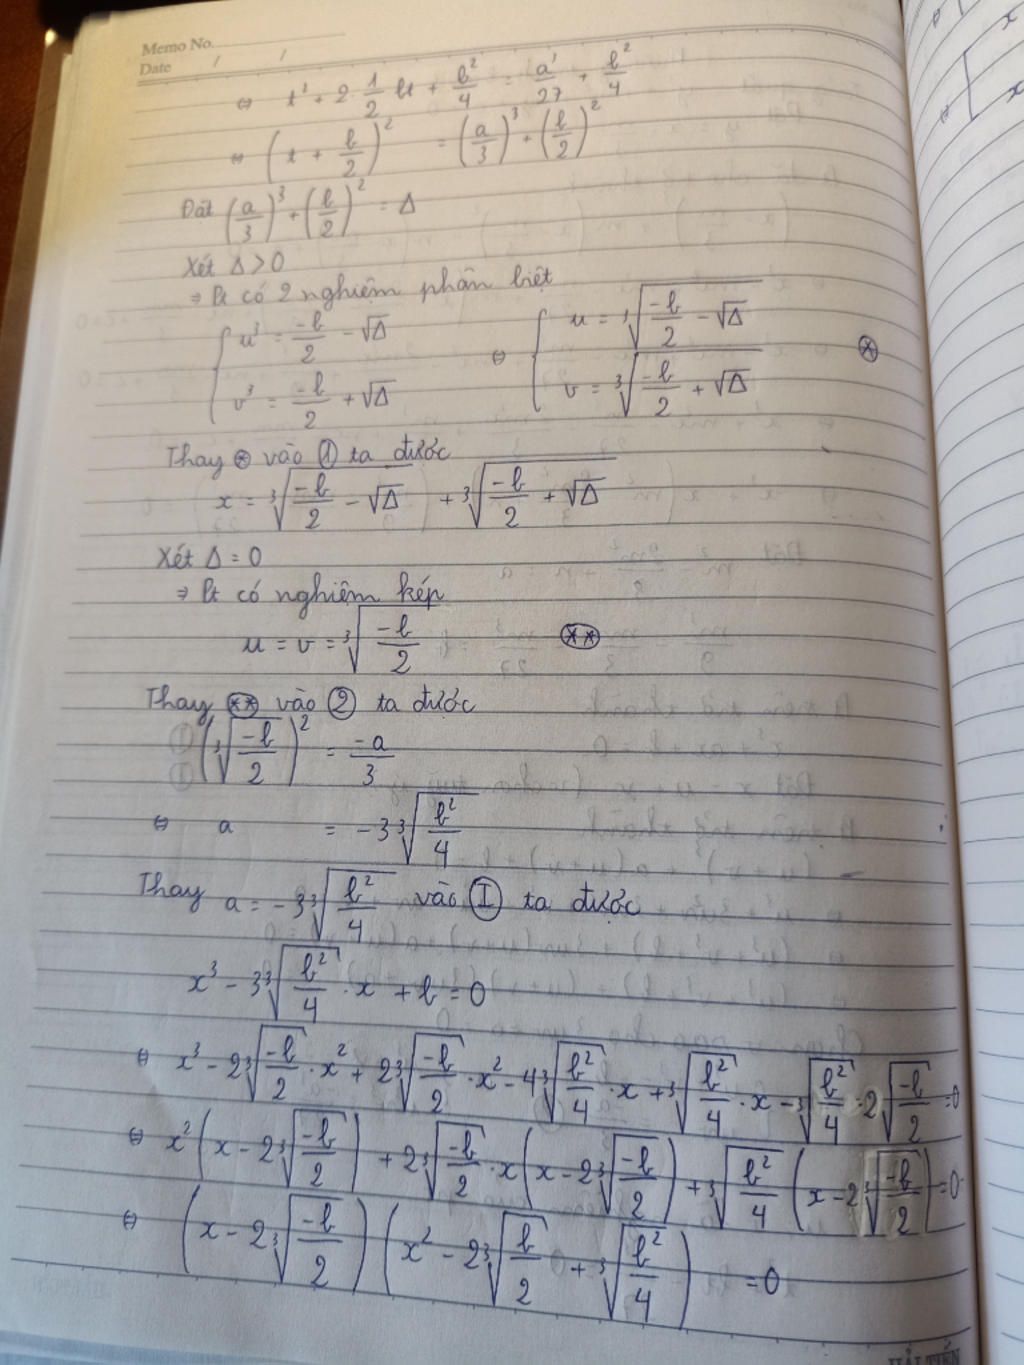 Memo No.
Date / /
⇔ t² + 2 · 1/2 bt + b²/4 = a³/27 + b²/4
⇔ (t + b/2)² = (a/3)³ + (b/2)²
Đặt (a/3)³ + (b/2)² = Δ
Xét Δ > 0
⇒ Pt có 2 nghiệm phân biệt
{ u³ = -b/2 - √Δ ⇔ { u = ³√(-b/2 - √Δ) ⊛
{ v³ = -b/2 + √Δ { v = ³√(-b/2 + √Δ)
Thay ⊛ vào ① ta được
x = ³√(-b/2 - √Δ) + ³√(-b/2 + √Δ)
Xét Δ = 0
⇒ Pt có nghiệm kép
u = v = ³√(-b/2) (**)
Thay (**) vào ② ta được
(³√(-b/2))² = -a/3
⇔ a = -3 ³√(b²/4)
Thay a = -3 ³√(b²/4) vào Ⓘ ta được
x³ - 3 ³√(b²/4) · x + b = 0
⇔ x³ - 2 ³√(-b/2) · x² + 2 ³√(-b/2) · x² - 4 ³√(b²/4) · x + ³√(b²/4) · x - ³√(b²/4) · 2 ³√(-b/2) = 0
⇔ x² (x - 2 ³√(-b/2)) + 2 ³√(-b/2) · x (x - 2 ³√(-b/2)) + ³√(b²/4) (x - 2 ³√(-b/2)) = 0
⇔ (x - 2 ³√(-b/2)) (x² - 2 ³√(b/2) + ³√(b²/4)) = 0
HẢI TIẾN